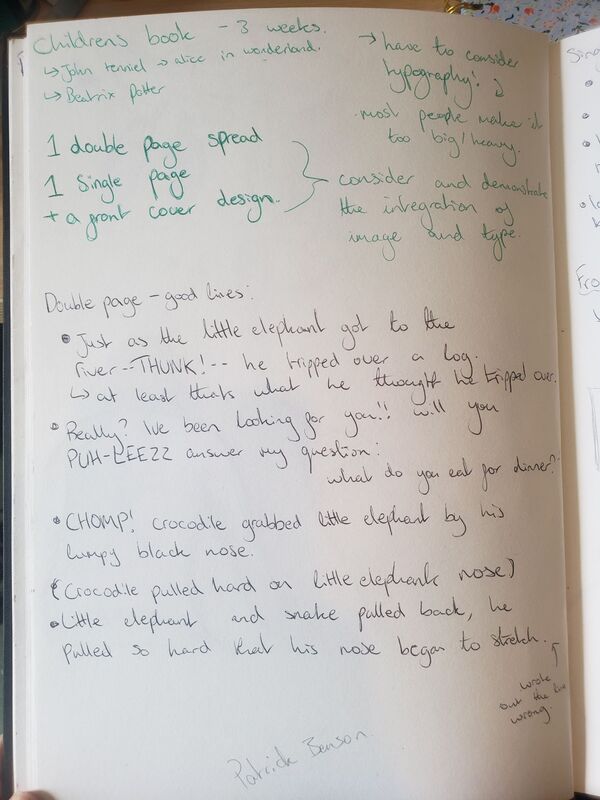 Childrens book - 3 weeks.
↳ John tenniel → alice in wonderland.
↳ Beatrix Potter
→ have to consider
typography!
most people make it
too big/heavy.
1 double page spread
1 single page
+ a front cover design.
consider and demonstrate
the integration of
image and type.
Double page - good lines:
• Just as the little elephant got to the
river--THUNK!-- he tripped over a log.
↳ at least thats what he thought he tripped over.
• Really? Ive been looking for you!! will you
PUH-LEEZZ answer my question:
what do you eat for dinner?
• CHOMP! Crocodile grabbed little elephant by his
lumpy black nose.
(Crocodile pulled hard on little elephants nose)
• Little elephant and snake pulled back, he
pulled so hard that his nose began to stretch.
wrote
out the line
wrong.
Patrick Benson.
Sing
Fro